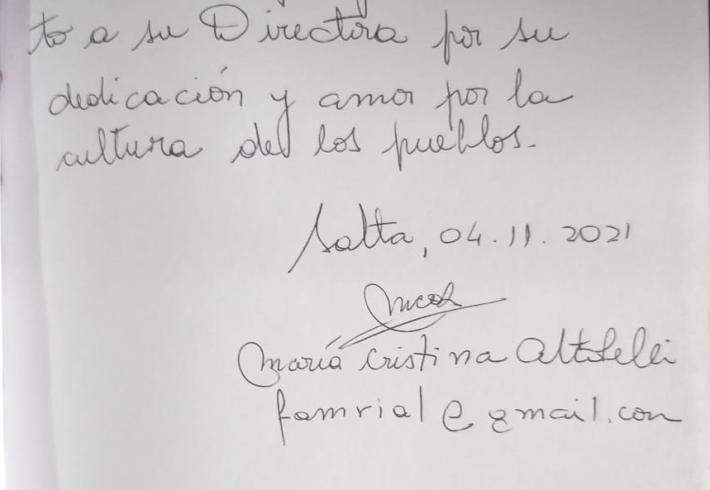 to a su Directora por su
dedicación y amor por la
cultura de los pueblos.
Salta, 04.11.2021
María Cristina
famrial@gmail.com